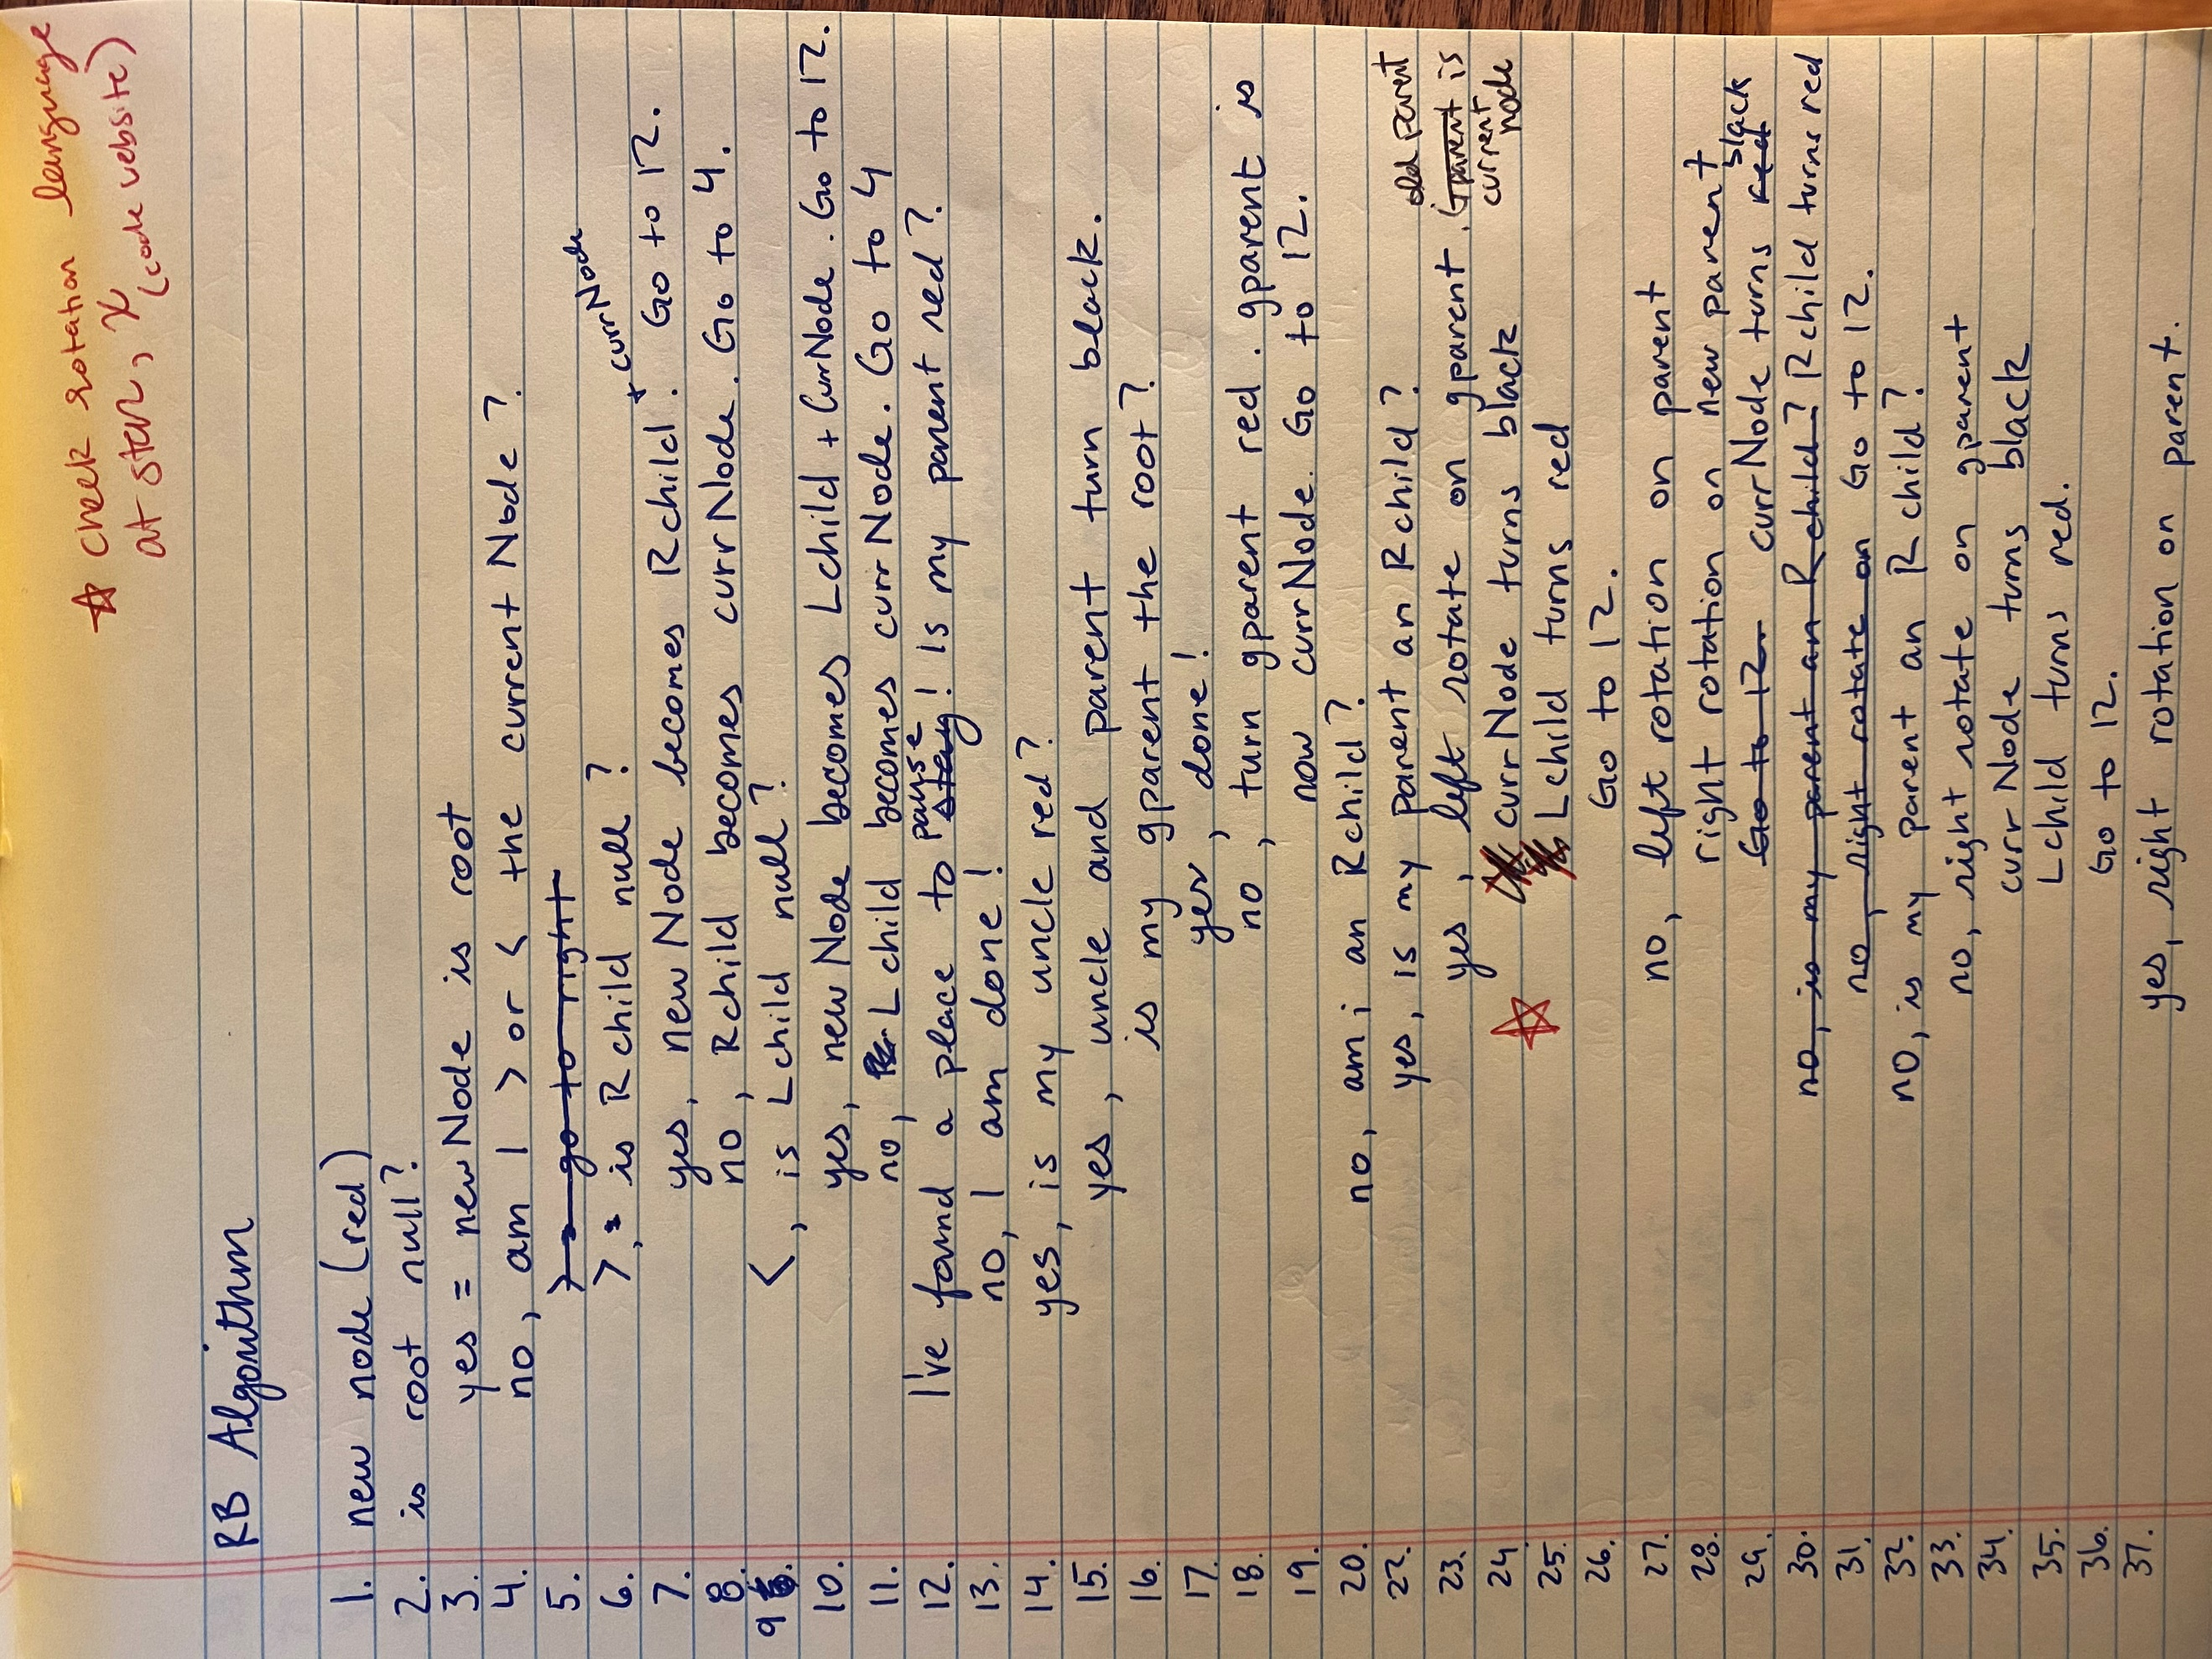 ☆ check rotation language
at STEM, x
(code website)
RB Algorithm
1. new node (red)
2. is root null?
3. yes = newNode is root
4. no, am I > or < the current Node?
5. > = go to right
6. >, = is Rchild null?
7. yes, newNode becomes Rchild + currNode. Go to 12.
8. no, Rchild becomes currNode. Go to 4.
9. <, is Lchild null?
10. yes, newNode becomes Lchild + CurrNode. Go to 12.
11. no, Lchild becomes currNode. Go to 4
12. I've found a place to stay pause! Is my parent red?
13. no, I am done!
14. yes, is my uncle red?
15. yes, uncle and parent turn black.
16. is my gparent the root?
17. yes, done!
18. no, turn gparent red. gparent is
19. now currNode. Go to 12.
20. no, am i an Rchild?
22. yes, is my parent an Rchild?
23. yes, left rotate on gparent. old parent Gparent is current node
24. currNode turns black
25. ☆ Lchild turns red
26. Go to 12.
27. no, left rotation on parent
28. right rotation on new parent
29. Go to 12 currNode turns red black
30. no, is my parent an Rchild? Rchild turns red
31. no, right rotate on Go to 12.
32. no, is my parent an Rchild?
33. no, right rotate on gparent
34. curr Node turns black
35. Lchild turns red.
36. Go to 12.
37. yes, right rotation on parent.